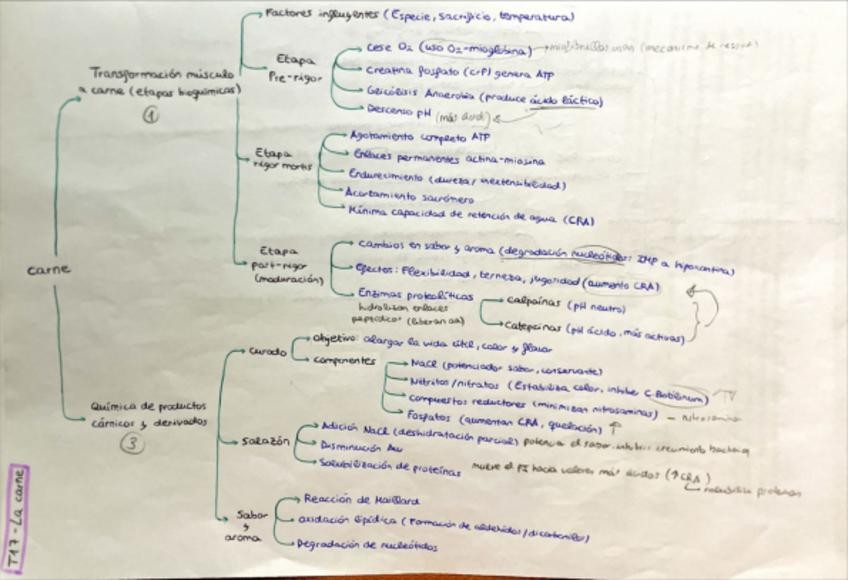 Factores influyentes (Especie, sacrificio, temperatura)
Transformación músculo
a carne (etapas bioquímicas)
1
Etapa
Pre-rigor
Cese O2 (uso O2-mioglobina)
Creatina fosfato (CrP) genera ATP
Glicólisis Anaerobia (produce ácido láctico)
Descenso pH (más ácido)
Etapa
rigor mortis
Agotamiento completo ATP
Enlaces permanentes actina-miosina
Endurecimiento (dureza/inextensibilidad)
Acortamiento sacrómero
Mínima capacidad de retención de agua (CRA)
Etapa
post-rigor
(maduración)
Cambios en sabor y aroma (degradación nucleótidos: IMP a hipoxantina)
Efectos: Flexibilidad, terneza, jugosidad (aumento CRA)
Enzimas proteolíticas
hidrolizan enlaces
peptídicos (liberan aa)
Calpaínas (pH neutro)
Catepsinas (pH ácido, más activas)
carne
Química de productos
cárnicos y derivados
3
curado
objetivo: alargar la vida útil, color y flavor
componentes
NaCl (potenciador sabor, conservante)
Nitritos/nitratos (Estabiliza color, inhibe C. Botulinum)
Compuestos reductores (minimizan nitrosaminas)
Fosfatos (aumentan CRA, quelación)
salazón
Adición NaCl (deshidratación parcial) potencia el sabor, inhibir crecimiento
Disminución Aw
Solubilización de proteínas mueve el PI hacia valores más ácidos (↑CRA)
Sabor
y
aroma
Reacción de Maillard
oxidación lipídica (Formación de aldehídos/dicarbonilos)
Degradación de nucleótidos
T17-La carne